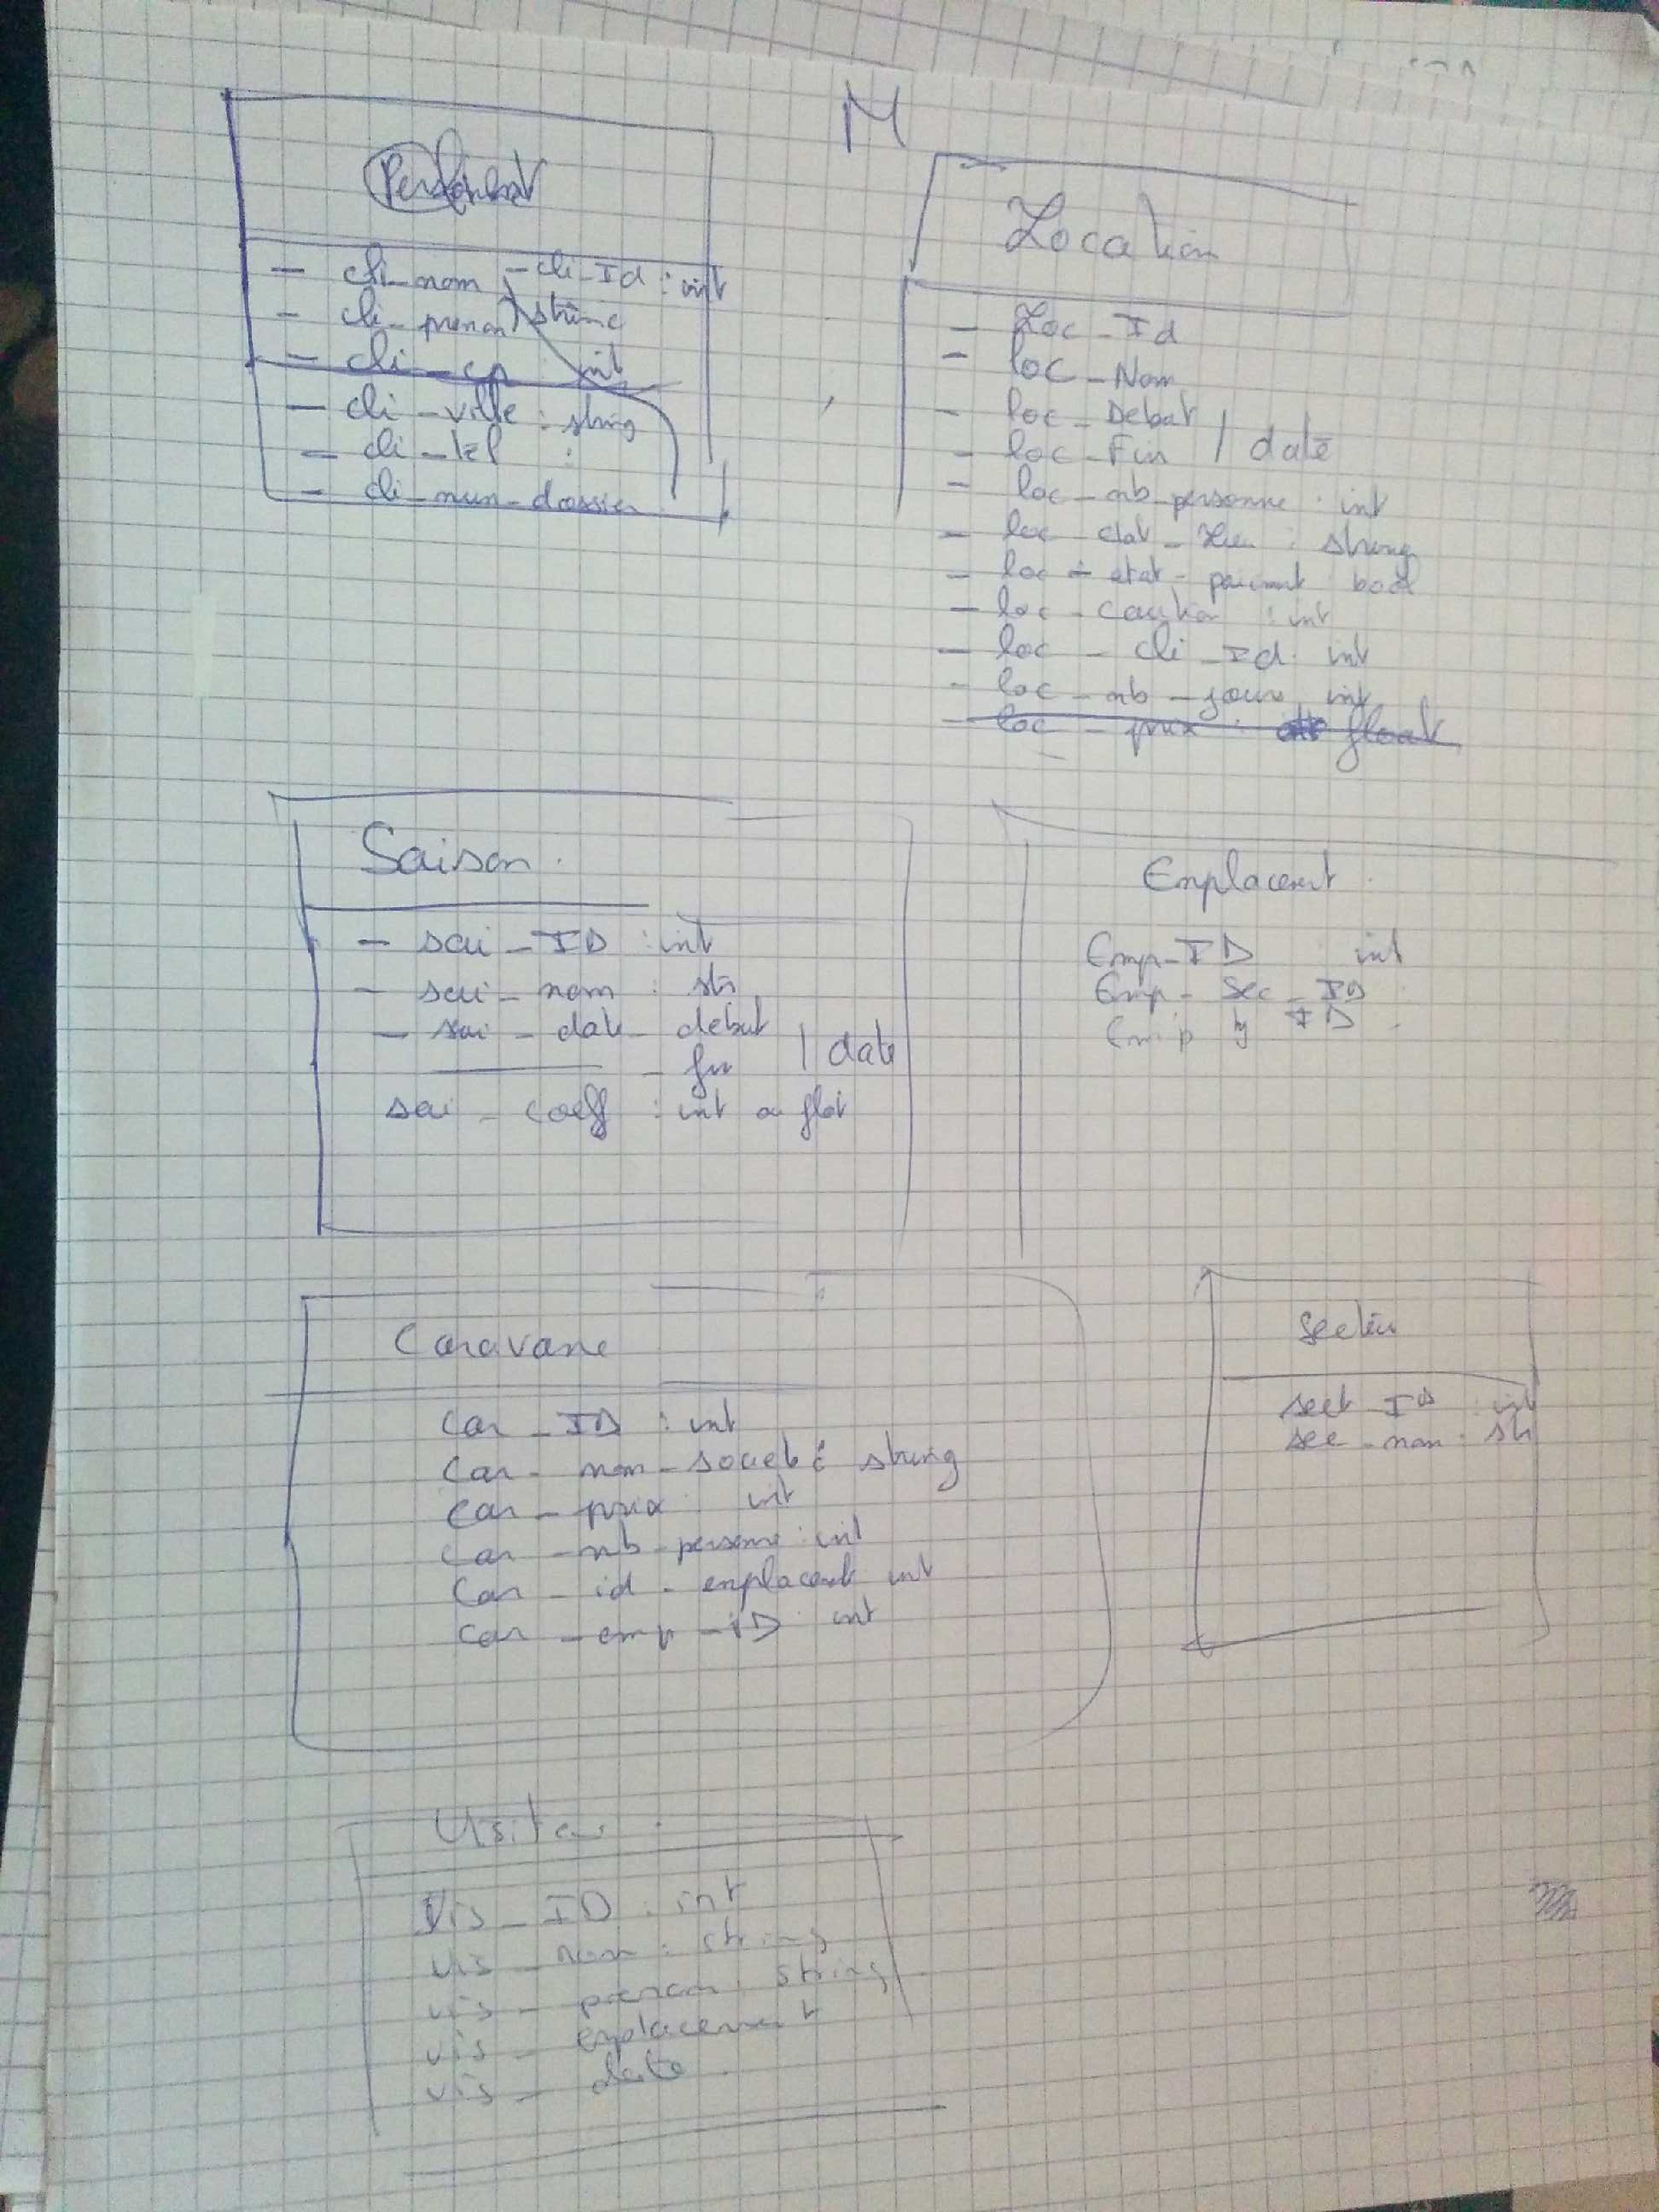 M
- cli_nom - cli_Id : int
- cli_prenom | string
- cli_cp : int
- cli_ville : string
- cli_tel :
- cli_num_dossier
Location
- Loc_Id
- loc_Nom
- loc_Debut
- loc_Fin | date
- loc_nb_personne : int
- loc_etat_lieu : string
- loc - etat - paiment bool
- loc - caution : int
- loc - cli_Id : int
- loc - nb - jours int
- loc - prix : float
Saison
- sai_ID : int
- sai_nom : str
- sai_date_debut
_ fin | date
sai_coeff : int ou flot
Emplacement
Emp_ID int
Emp_Sec_ID
Emp ty ID :
Caravane
car_ID : int
car_nom_societe : string
car_prix : int
car_nb_personne : int
car_id_emplacement int
car_emp_iD int
Secteur
sect_ID : int
sec_nom : str
Visiteur
Vis_ID : int
vis_nom : string
vis_prenom : string
vis_emplacement
vis_date